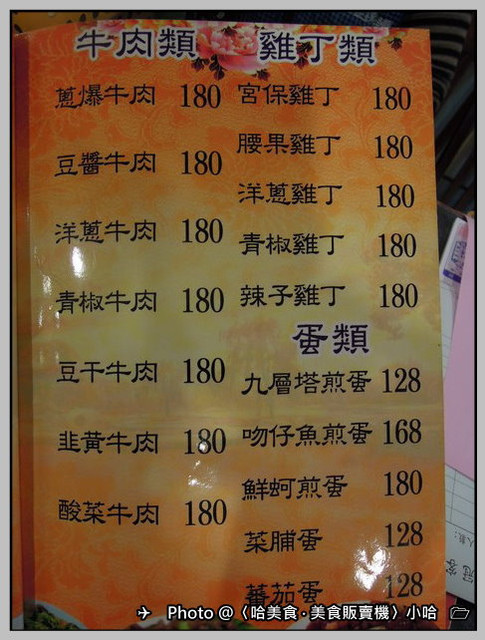 牛肉類
蔥爆牛肉 180
豆醬牛肉 180
洋蔥牛肉 180
青椒牛肉 180
豆干牛肉 180
韭黃牛肉 180
酸菜牛肉 180
雞丁類
宮保雞丁 180
腰果雞丁 180
洋蔥雞丁 180
青椒雞丁 180
辣子雞丁 180
蛋類
九層塔煎蛋 128
吻仔魚煎蛋 168
鮮蚵煎蛋 180
菜脯蛋 128
蕃茄蛋 128
Photo @〈哈美食·美食販賣機〉小哈